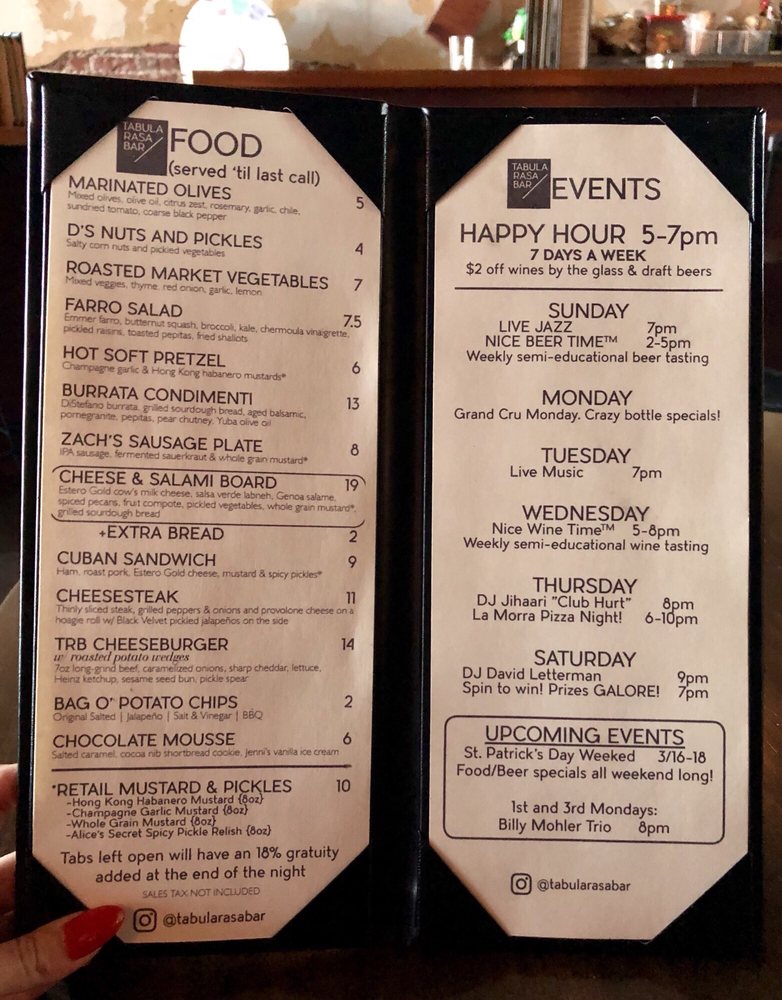 TABULA
RASA
BAR
FOOD
(served 'til last call)
MARINATED OLIVES 5
Mixed olives, olive oil, citrus zest, rosemary, garlic, chile,
sundried tomato, coarse black pepper
D'S NUTS AND PICKLES 4
Salty corn nuts and pickled vegetables
ROASTED MARKET VEGETABLES 7
Mixed veggies, thyme, red onion, garlic, lemon
FARRO SALAD 7.5
Emmer farro, butternut squash, broccoli, kale, chermoula vinaigrette,
pickled raisins, toasted pepitas, fried shallots
HOT SOFT PRETZEL 6
Champagne garlic & Hong Kong habanero mustards*
BURRATA CONDIMENTI 13
DiStefano burrata, grilled sourdough bread, aged balsamic,
pomegranite, pepitas, pear chutney, Yuba olive oil
ZACH'S SAUSAGE PLATE 8
IPA sausage, fermented sauerkraut & whole grain mustard*
CHEESE & SALAMI BOARD 19
Estero Gold cow's milk cheese, salsa verde labneh, Genoa salame,
spiced pecans, fruit compote, pickled vegetables, whole grain mustard*,
grilled sourdough bread
+EXTRA BREAD 2
CUBAN SANDWICH 9
Ham, roast pork, Estero Gold cheese, mustard & spicy pickles*
CHEESESTEAK 11
Thinly sliced steak, grilled peppers & onions and provolone cheese on a
hoagie roll w/ Black Velvet pickled jalapeños on the side
TRB CHEESEBURGER 14
w/ roasted potato wedges
7oz long-grind beef, caramelized onions, sharp cheddar, lettuce,
Heinz ketchup, sesame seed bun, pickle spear
BAG O' POTATO CHIPS 2
Original Salted | Jalapeño | Salt & Vinegar | BBQ
CHOCOLATE MOUSSE 6
Salted caramel, cocoa nib shortbread cookie, Jenni's vanilla ice cream
*RETAIL MUSTARD & PICKLES 10
-Hong Kong Habanero Mustard {8oz}
-Champagne Garlic Mustard {8oz}
-Whole Grain Mustard {8oz}
-Alice's Secret Spicy Pickle Relish {8oz}
Tabs left open will have an 18% gratuity
added at the end of the night
SALES TAX NOT INCLUDED
@tabularasabar
TABULA
RASA
BAR
EVENTS
HAPPY HOUR 5-7pm
7 DAYS A WEEK
$2 off wines by the glass & draft beers
SUNDAY
LIVE JAZZ 7pm
NICE BEER TIME™ 2-5pm
Weekly semi-educational beer tasting
MONDAY
Grand Cru Monday. Crazy bottle specials!
TUESDAY
Live Music 7pm
WEDNESDAY
Nice Wine Time™ 5-8pm
Weekly semi-educational wine tasting
THURSDAY
DJ Jihaari "Club Hurt" 8pm
La Morra Pizza Night! 6-10pm
SATURDAY
DJ David Letterman 9pm
Spin to win! Prizes GALORE! 7pm
UPCOMING EVENTS
St. Patrick's Day Weeked 3/16-18
Food/Beer specials all weekend long!
1st and 3rd Mondays:
Billy Mohler Trio 8pm
@tabularasabar